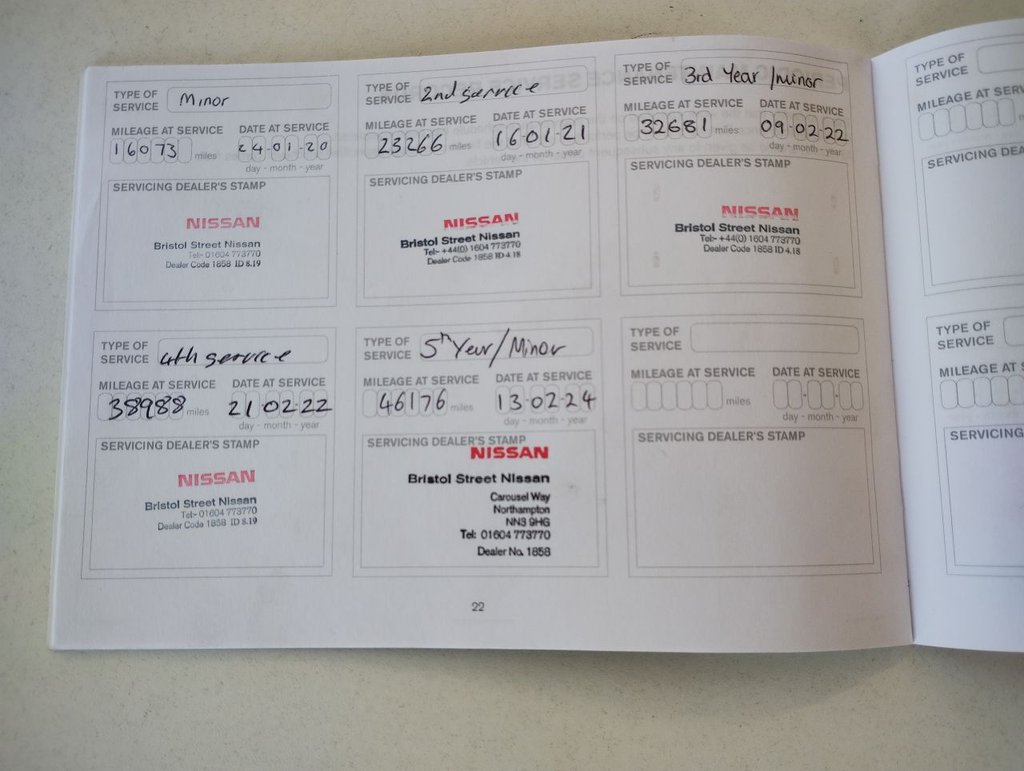 TYPE OF SERVICE Minor
MILEAGE AT SERVICE DATE AT SERVICE
16073 miles 24-01-20
day - month - year
SERVICING DEALER'S STAMP
NISSAN
Bristol Street Nissan
Tel:- 01604 773770
Dealer Code 1858 ID 8.19
TYPE OF SERVICE 2nd service
MILEAGE AT SERVICE DATE AT SERVICE
23266 miles 16-01-21
day - month - year
SERVICING DEALER'S STAMP
NISSAN
Bristol Street Nissan
Tel:- +44(0) 1604 773770
Dealer Code 1858 ID 4.18
TYPE OF SERVICE 3rd Year /minor
MILEAGE AT SERVICE DATE AT SERVICE
32681 miles 09-02-22
day - month - year
SERVICING DEALER'S STAMP
NISSAN
Bristol Street Nissan
Tel:- +44(0) 1604 773770
Dealer Code 1858 ID 4.18
TYPE OF SERVICE 4th service
MILEAGE AT SERVICE DATE AT SERVICE
38988 miles 21-02-22
day - month - year
SERVICING DEALER'S STAMP
NISSAN
Bristol Street Nissan
Tel:- 01604 773770
Dealer Code 1858 ID 8.19
TYPE OF SERVICE 5th Year/Minor
MILEAGE AT SERVICE DATE AT SERVICE
46176 miles 13-02-24
day - month - year
SERVICING DEALER'S STAMP
NISSAN
Bristol Street Nissan
Carousel Way
Northampton
NN3 9HG
Tel: 01604 773770
Dealer No. 1858
TYPE OF SERVICE
MILEAGE AT SERVICE DATE AT SERVICE
miles
day - month - year
SERVICING DEALER'S STAMP
22
TYPE OF SERVICE
MILEAGE AT
SERVICING
TYPE OF SERVICE
MILEAGE AT SERV
SERVICING